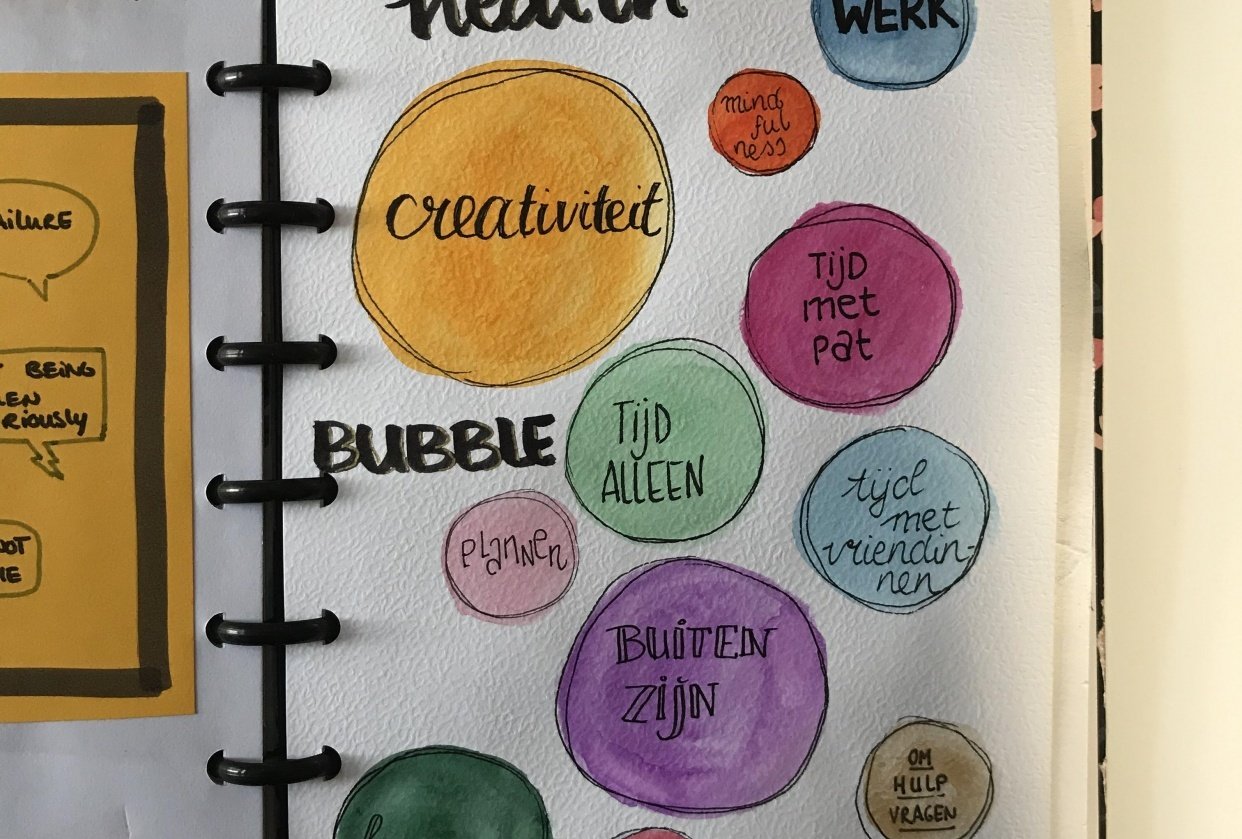 health
WERK
mind
ful
ness
creativiteit
TijD
met
pat
BUBBLE
TijD
ALLEEN
tijd
met
vriendin-
nen
PLANNEN
BUITEN
ZIJN
OM
HULP
VRAGEN
BEING
RiOUSLY